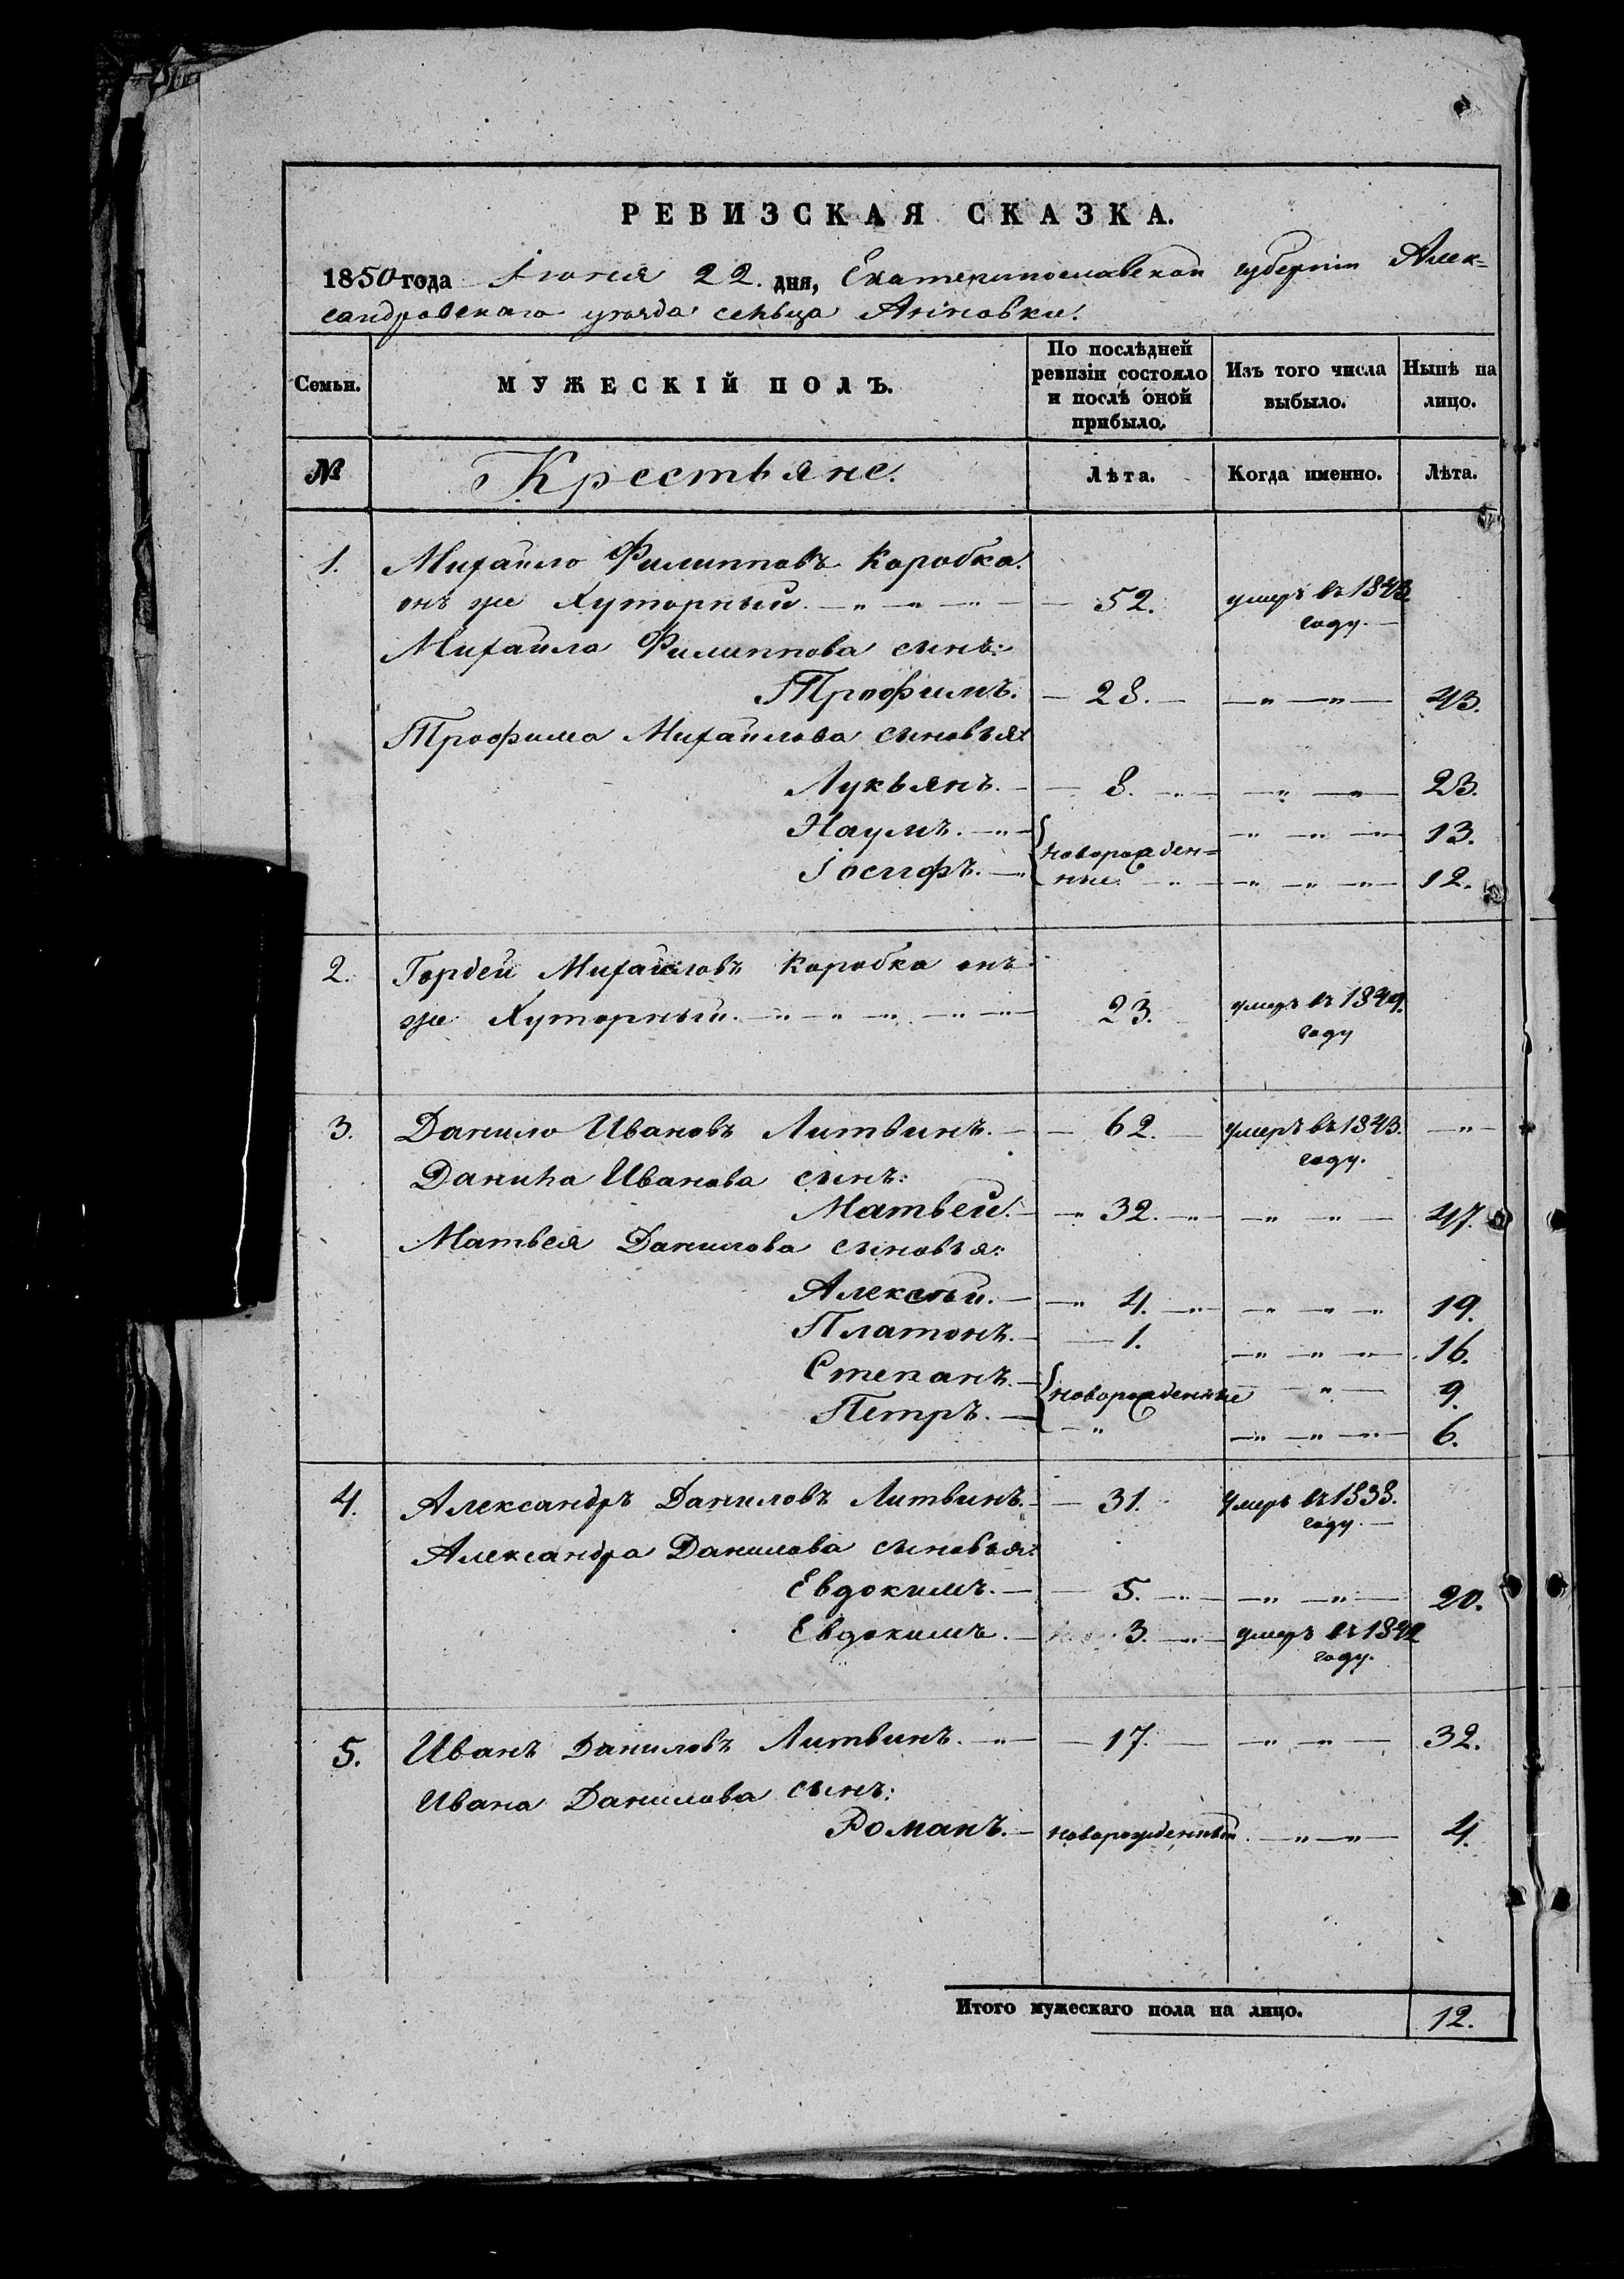 РЕВИЗСКАЯ СКАЗКА.
1850 года Іюня 22. дня, Екатеринославской губерніи Алек=
сандровскаго уѣзда сельца Аніновки.
Семьи. МУЖЕСКІЙ ПОЛЪ. По послѣдней ревизіи состояло и послѣ оной прибыло. Изъ того числа выбыло. Нынѣ на лицо.
№ Крестьяне. Лѣта. Когда именно. Лѣта.
1. Михайло Филипповъ Коробка
онъ же Хуторный. — „ — „ — „ — 52. умеръ въ 1843.
году. —
Михайла Филиппова сынъ:
Трофимъ. — 28. — — „ — „ — 43.
Трофима Михайлова сыновья:
Лукьянъ. — 8. — „ — — „ — „ — 23.
Наумъ. — „ — { новорожден= — „ — „ — „ — 13.
Іосифъ. — „ ные. — „ — — „ — „ — „ — 12.
2. Гордей Михайловъ Коробка онъ
же Хуторный. — „ — „ — „ — „ — „ — 23. умеръ въ 1849.
году
3. Данило Ивановъ Литвинъ. — 62. — умеръ въ 1843. — „ —
году.
Данила Иванова сынъ:
Матвей. — „ 32. — „ — — „ — „ — 47.
Матвея Данилова сыновья:
Алексѣй. — — „ 4. — „ — — „ — „ — „ 19.
Платонъ. — — 1. — „ — „ — „ — 16.
Степанъ. — { новорожденные — „ — 9.
Петръ. — — „ — „ — „ — „ — 6.
4. Александръ Даниловъ Литвинъ. — 31. умеръ въ 1838.
году. —
Александра Данилова сыновья:
Евдокимъ. — — 5. — „ — — „ — „ — 20.
Евдокимъ. — 3. — „ — умеръ въ 1842
году.
5. Иванъ Даниловъ Литвинъ. — „ — — 17. — — „ — „ — 32.
Ивана Данилова сынъ:
Романъ. — новорожденный. — „ — „ — 4.
Итого мужескаго пола на лицо. 12.